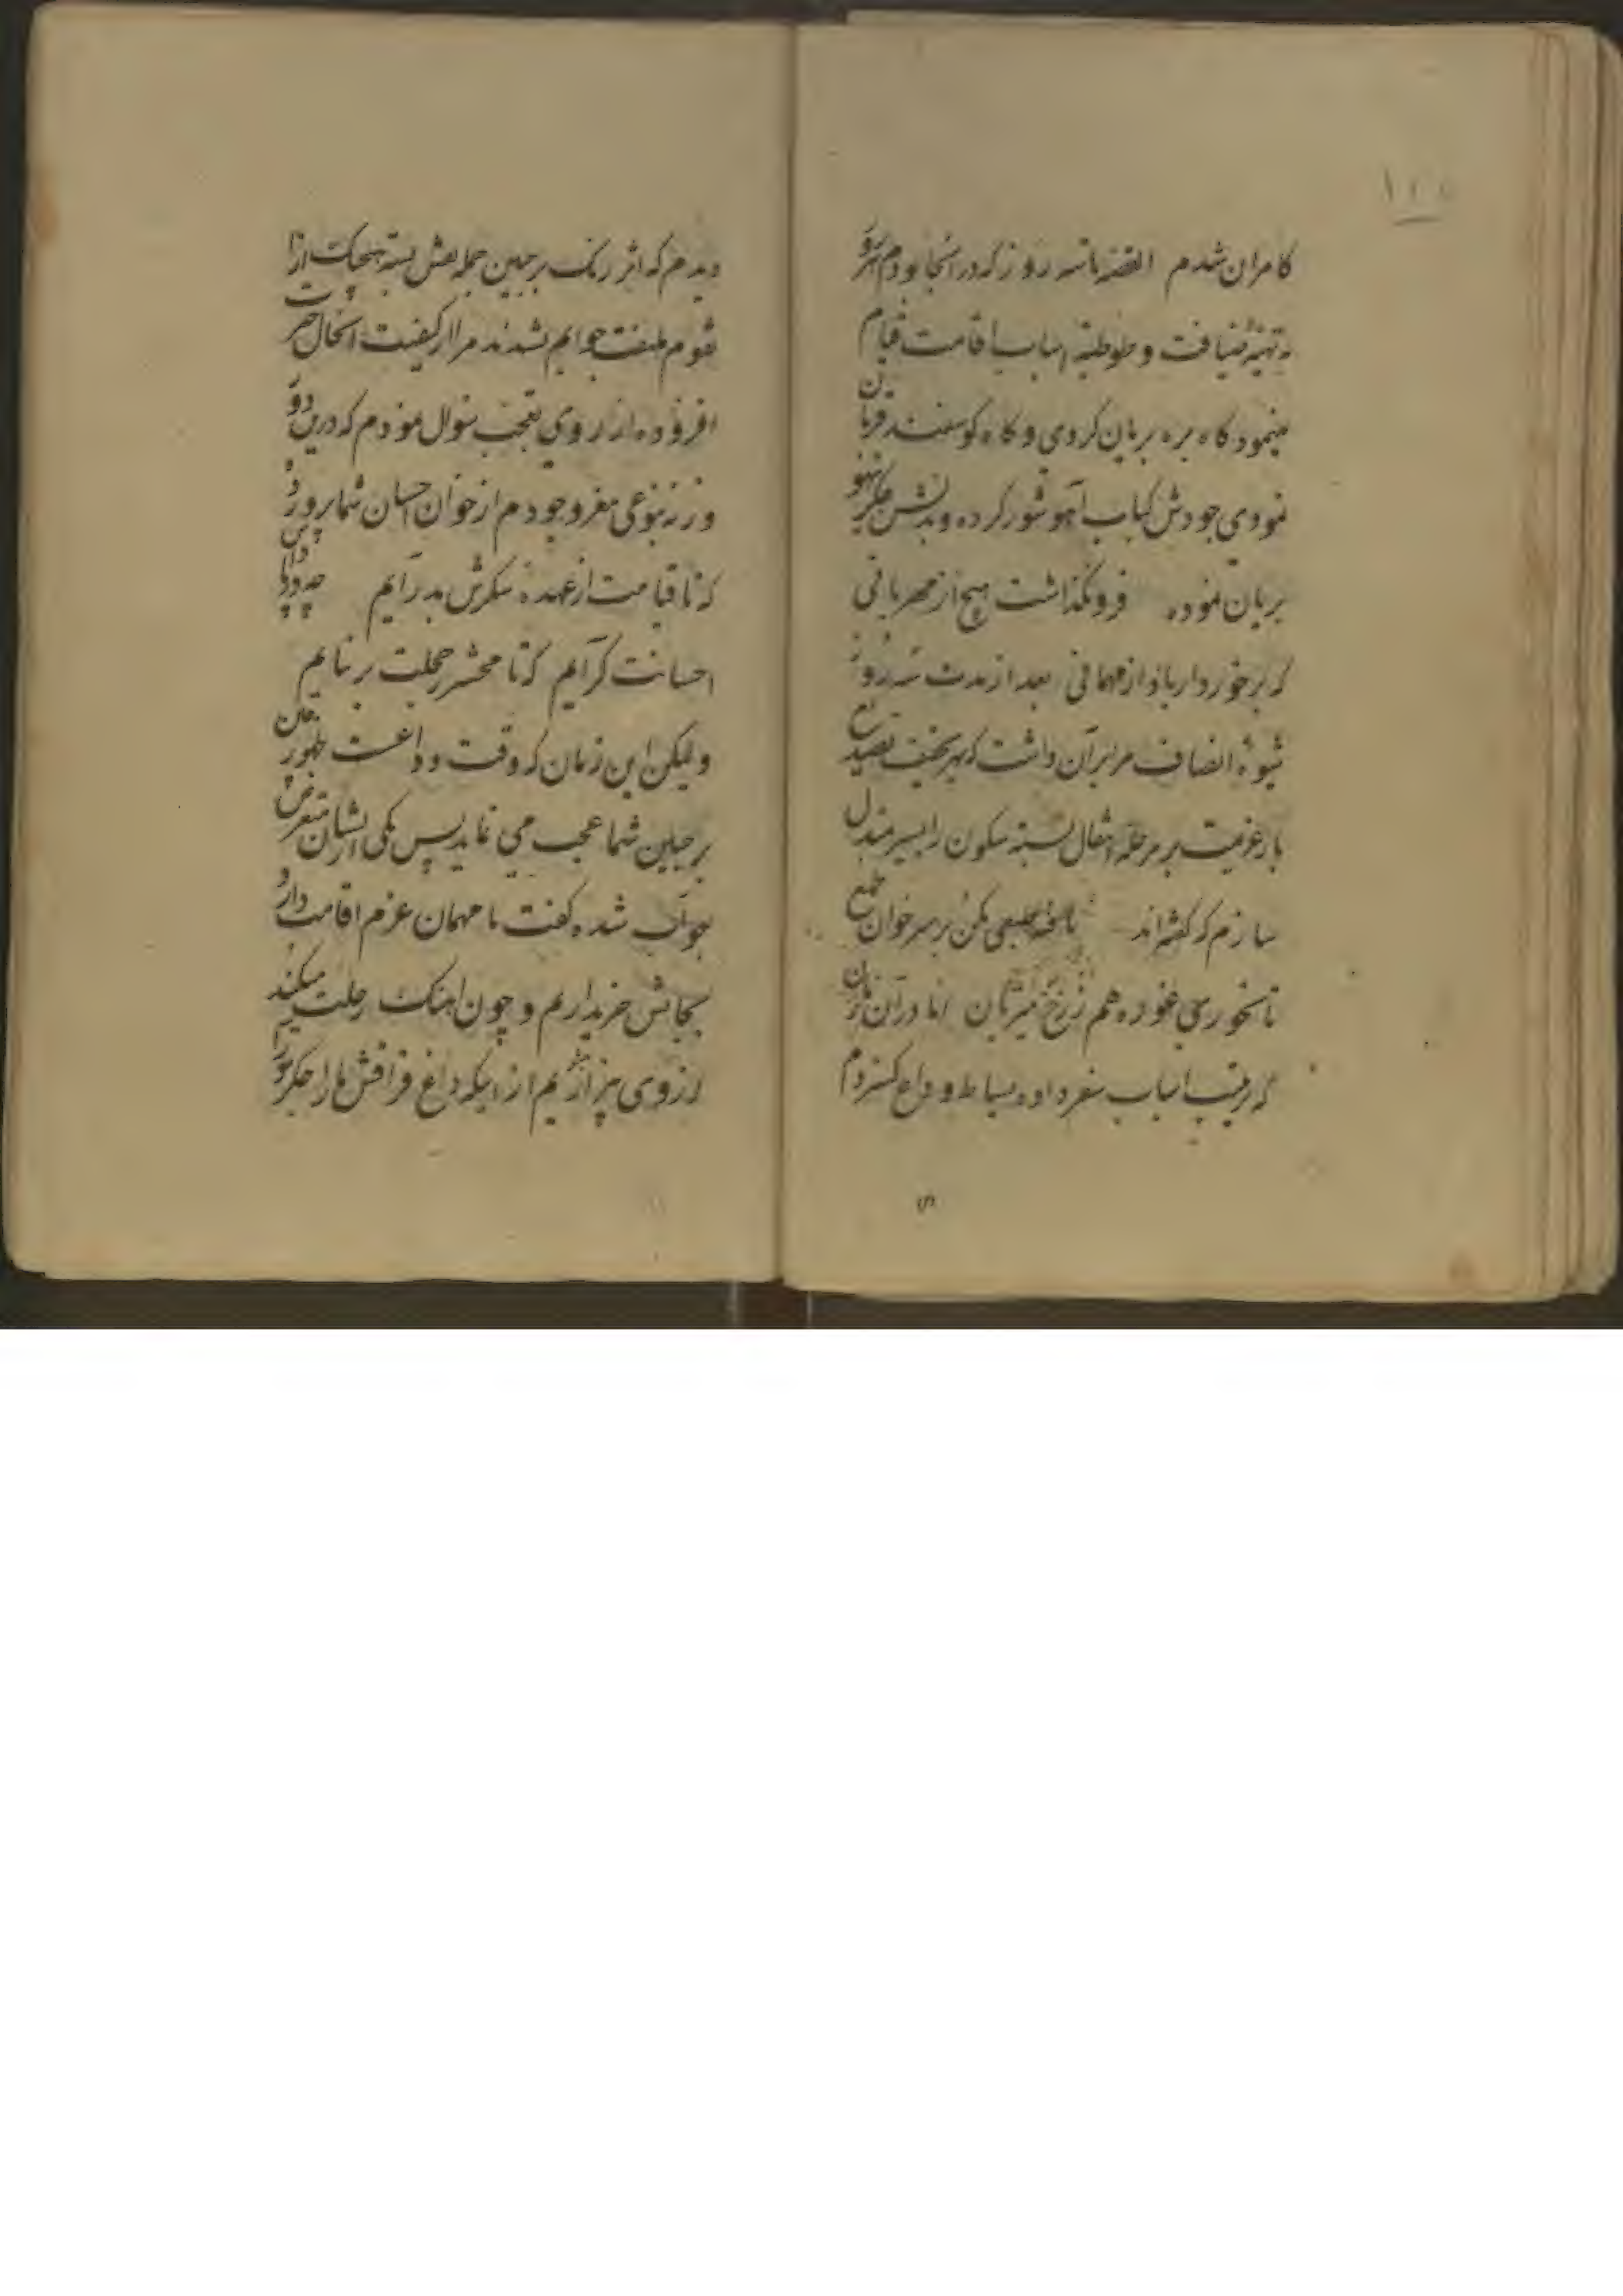 کامران شدم القصه تا سه روز که در انجا بودم هر رو
به تهیهٔ ضیافت و طوطیهٔ اسباب اقامت قیام
مینمود کاه بره بریان کردی و کاه کوسفند قربان
نمودی جودش کباب آهو شور کرده
بریان نموده فرونگذاشت هیچ از مهربانی
که برخوردار باد از مهمانی بعد از مدت سه روز
شیوهٔ انصاف مرا بر آن داشت که بهر تخفیف تصدیع
بار عزیمت بر مرحله انتقال بسته سکون را سر منزل
سازم که گفته‌اند مکن بر سر خوان طمع
تا نخوری غوره هم ز رخ میزبان اما در آن زمان
که ترتیب اسباب سفر داده بساط وداع کستردم
دیدم که اثر رنک بر جبین جمله نقش بسته هیچیک از آن
قوم ملتفت جوابم نشدند مرا از کیفیت انحال حیرت
افزوده از روی تعجب سوال نمودم که درین دو
روزه نوعی مغز وجودم از خوان احسان شما پرورده
که تا قیامت از عهدهٔ شکرش بدر آیم چه
احسانت کر آیم که تا محشر خجلت بر نیایم
ولیکن این زمان که وقت وداعست ظهور چین
بر جبین شما عجب می نماید پس یکی از ایشان متعرض
جواب شده کفت تا مهمان عزم اقامت دارد
بجانش خریداریم و چون اهنک رحلت میکند
از وی بیزاریم از اینکه داغ فراقش ما را جکر